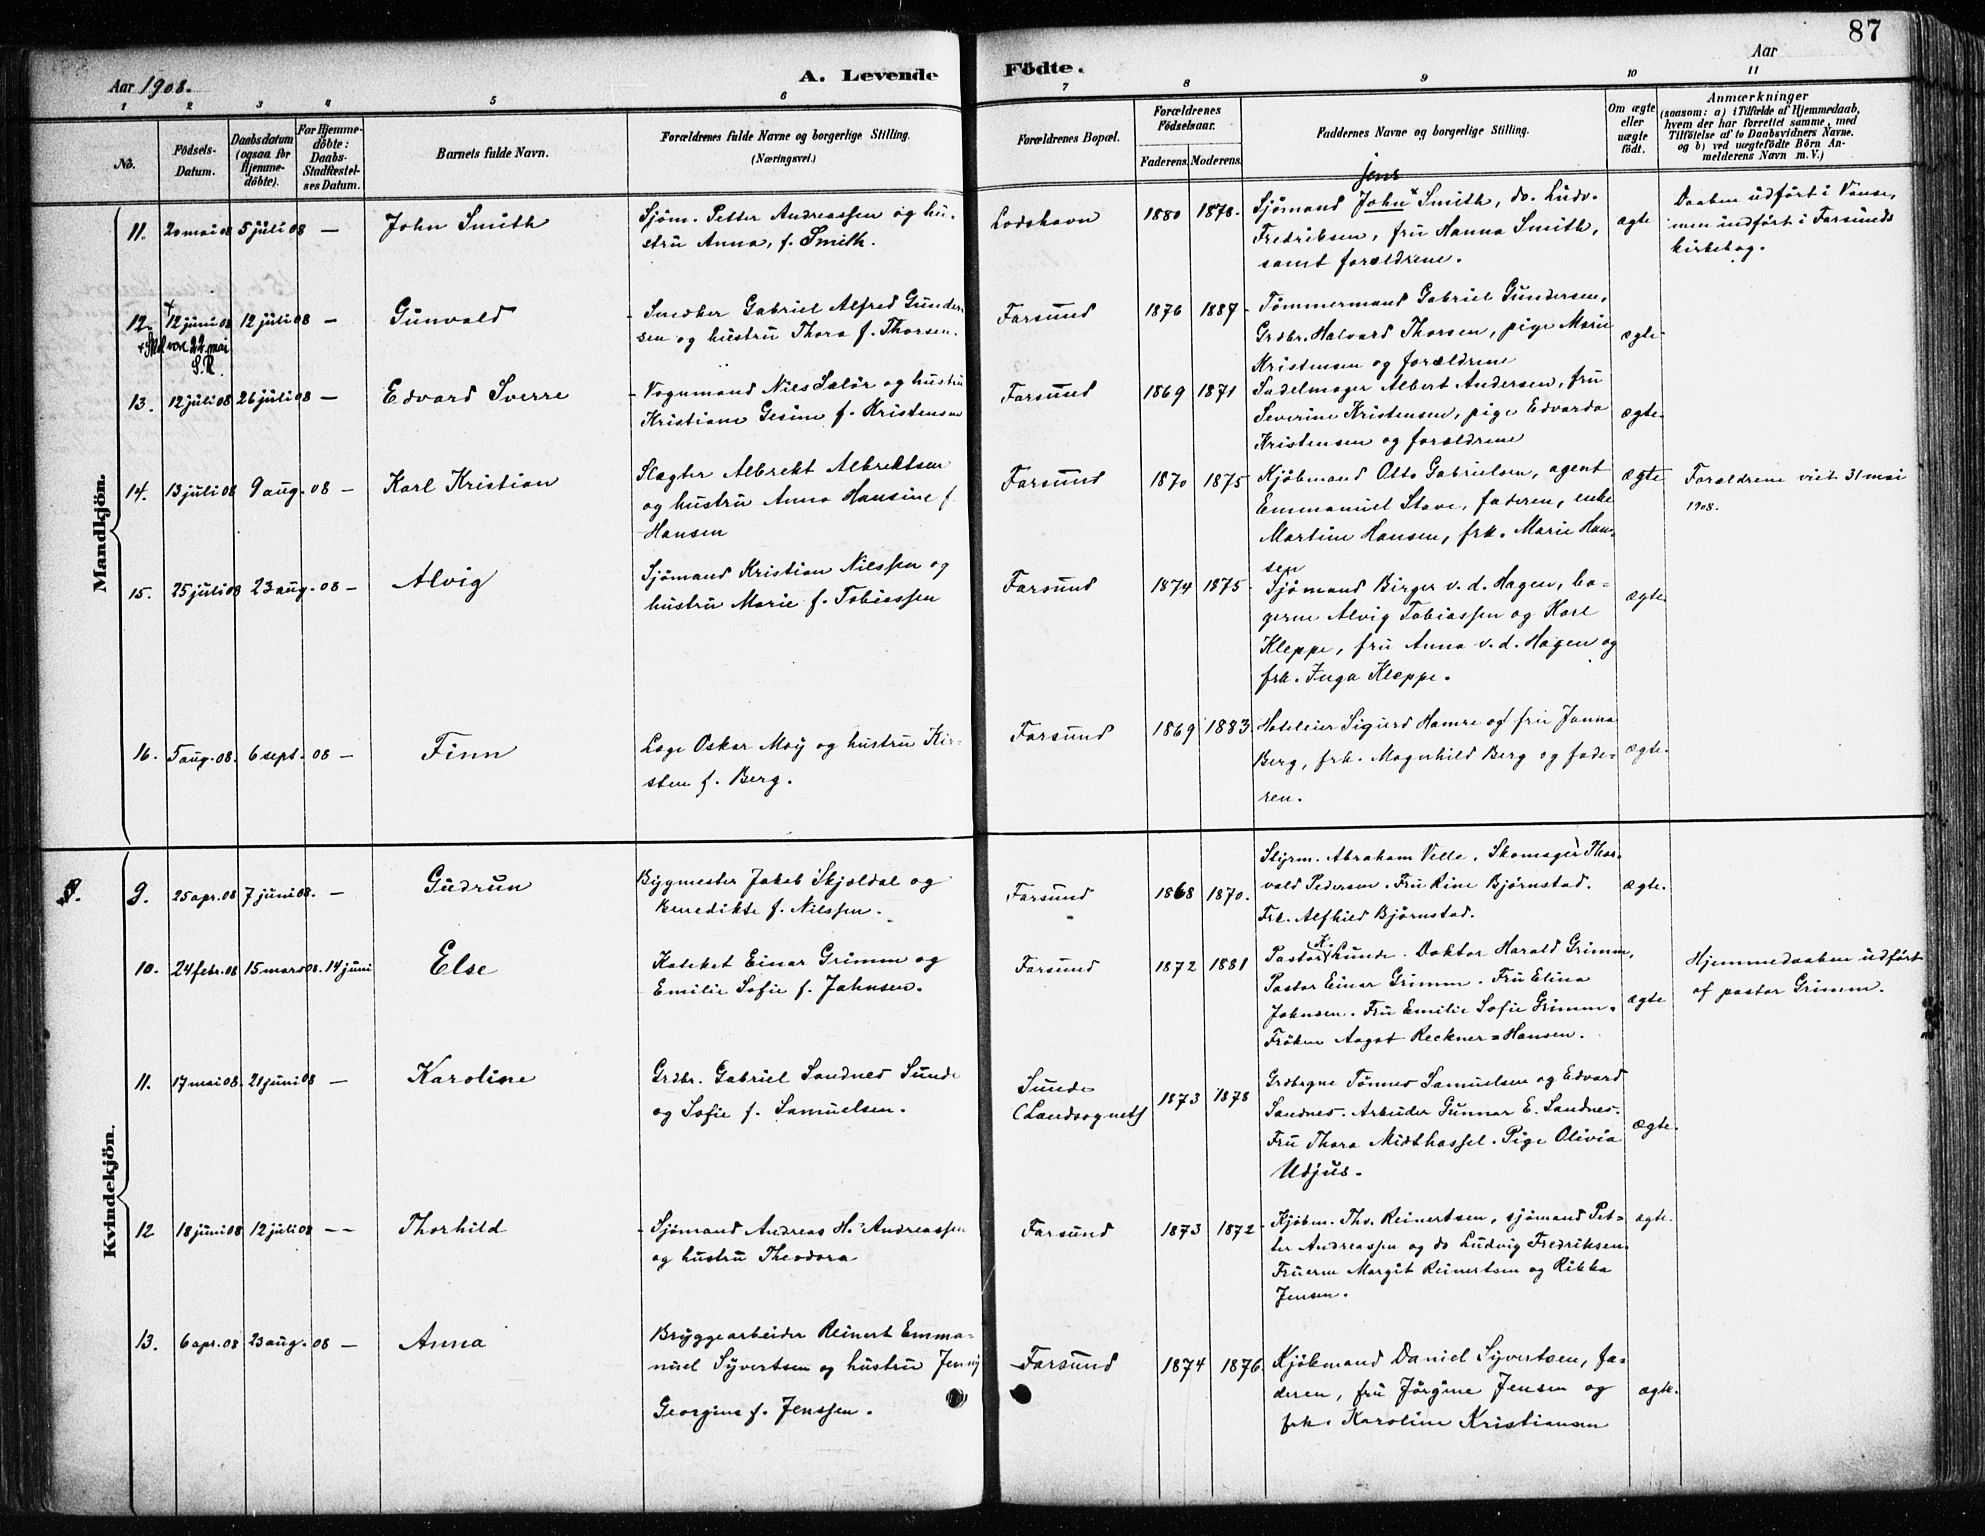 87
Aar 1908.
A. Levende Födte.
Aar
1 2 3 4 5 6 7 8 9 10 11
No.
Födsels-
Datum.
Daabsdatum
(ogsaa for
Hjemme-
döbte).
For Hjemme-
döbte:
Daabs-
Stadfæstel-
ses Datum.
Barnets fulde Navn.
Forældrenes fulde Navne og borgerlige Stilling.
(Næringsvei.)
Forældrenes Bopæl.
Forældrenes
Födselsaar.
Faderens. Moderens.
Faddernes Navne og borgerlige Stilling.
Om ægte
eller
uægte
födt.
Anmærkninger
(saasom: a) i Tilfælde af Hjemmedaab,
hvem der har forrettet samme, med
Tilföielse af to Daabsvidners Navne.
og b) ved uægtefödte Börn An-
melderens Navn m. V.)
Mandkjön.
11. 20 mai 08 5 juli 08 — John Smith
Sjøm. Petter Andreassen og hu-
stru Anna, f. Smith.
Lodshavn 1880 1878.
jens
Sjømand John Smith, do. Ludv.
Fredriksen, fru Hanna Smith,
samt forældrene.
ægte
Daaben udført i Vanse,
men indført i Farsunds
kirkebog.
12. + 12 juni 08 12 juli 08 — Gunvald
+ Skal være 22 mai
S.R.
Smørber Gabriel Alfred Gunder-
sen og hustru Thora f. Thorsen.
Farsund 1876 1887
Tømmermand Gabriel Gundersen,
Grdbr. Halvard Thorsen, pige Marie
Kristensen og forældrene
ægte
13. 12 juli 08 26 juli 08 — Edvard Sverre
Vognmand Nils Salør og hustru
Kristiane Gesine f. Kristensen
Farsund 1869 1871
Sadelmager Albert Andersen, fru
Severine Kristensen, pige Edvarda
Kristensen og forældrene
ægte
14. 13 juli 08 9 aug. 08 — Karl Kristian
Slagter Albrekt Albrektsen
og hustru Anna Hansine f.
Hansen
Farsund 1870 1875
Kjøbmand Otto Gabrielsen, agent
Emmanuel Stave, faderen, enke
Martine Hansen, frk. Marie Han-
sen
ægte
Forældrene viet 31 mai
1908.
15. 25 juli 08 23 aug. 08 — Alvig
Sjømand Kristian Nilssen og
hustru Marie f. Tobiassen
Farsund 1874 1875
Sjømand Birger v. d. Hagen, ba-
gerne Alvig Tobiassen og Karl
Kleppe, fru Anna v. d. Hagen og
frk. Inga Kleppe.
ægte
16. 5 aug. 08. 6 sept. 08 — Finn
Læge Oskar Møy og hustru Kir-
sten f. Berg.
Farsund 1869 1883.
Hoteleier Sigurd Hamre og fru Janna
Berg, frk. Magnhild Berg og fade-
ren.
ægte.
Kvindekjön.
9. 9. 25 apr. 08 7 juni 08. — Gudrun
Bygmester Jakob Skjoldal og
Benedikte f. Nilssen.
Farsund 1868 1870.
Styrm. Abraham Velle. Skomager Thor-
vald Pedersen. Fru Rine Bjørnstad.
Frk. Alfhild Bjørnstad.
ægte.
10. 24 febr. 08 15 mars 08. 14 juni Else
Kateket Einar Grimm og
Emilie Sofie f. Jahnsen.
Farsund 1872 1881
Pastor K. Lunde. Doktor Harald Grimm,
Pastor Einar Grimm. Fru Elina
Jahnsen. Fru Emilie Sofie Grimm.
Frøken Aagot Reckner-Hansen.
ægte
Hjemmedaaben udført
af pastor Grimm.
11. 17 mai 08. 21 juni 08 — Karoline
Grdbr. Gabriel Sandnes Sunde
og Sofie f. Samuelsen.
Sunde
(Landsognet)
1873 1878
Grdbrgne Tønnes Samuelsen og Edvard
Sandnes. Arbeider Gunnar E. Sandnes.
Fru Thora Midthassel. Pige Olivia
Udjus.
ægte.
12 18 juni 08 12 juli 08 — Thorhild
Sjømand Andreas H. Andreassen
og hustru Theodora
Farsund 1873 1872
Kjøbm. Thv. Reinertsen, sjømand Pet-
ter Andreassen og do Ludvig Fredriksen.
Fruerne Margit Reinertsen og Rikka
Jensen.
ægte.
13. 6 apr. 08 23 aug. 08 — Anna
Bryggearbeider Reinert Emma-
nuel Syvertsen og hustru Jenny
Georgine f. Jenssen.
Farsund 1874 1876.
Kjøbmand Daniel Syvertsen, fa-
deren, fru Jørgine Jensen og
frk. Karoline Kristiansen
ægte.